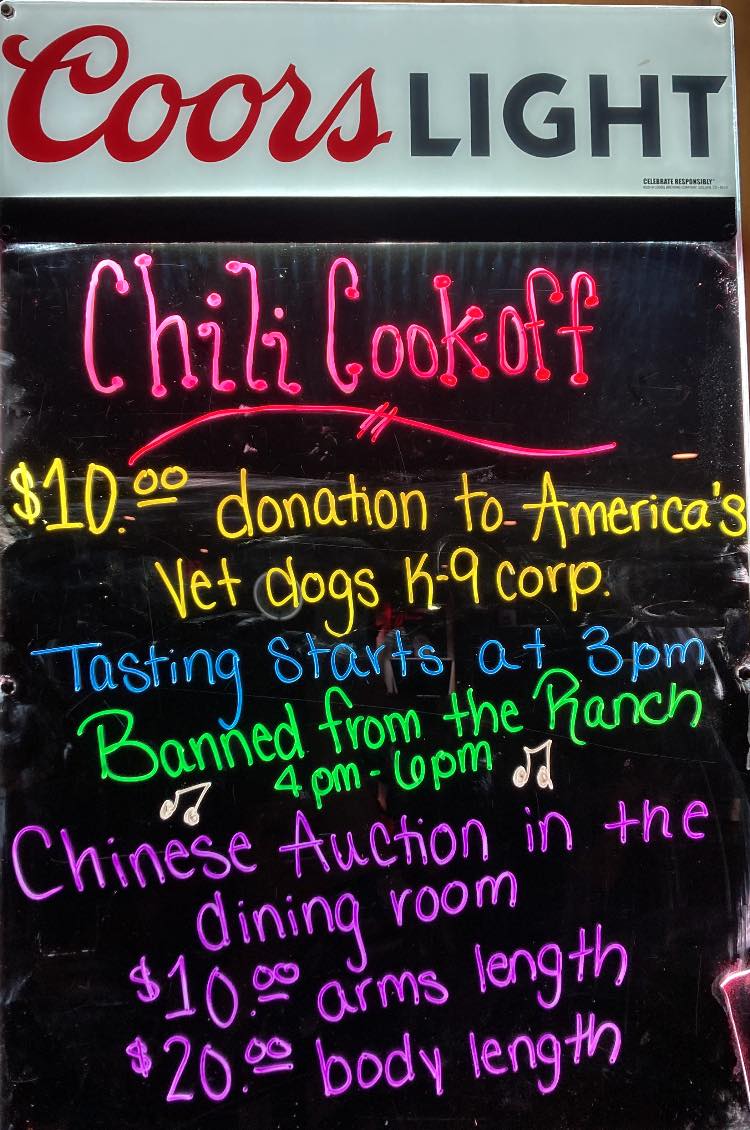 Coors LIGHT
CELEBRATE RESPONSIBLY
Chili Cook-off
$10.00 donation to America's
Vet dogs K-9 corp.
Tasting starts at 3pm
Banned from the Ranch
4pm-6pm
Chinese Auction in the
dining room
$10.00 arms length
$20.00 body length